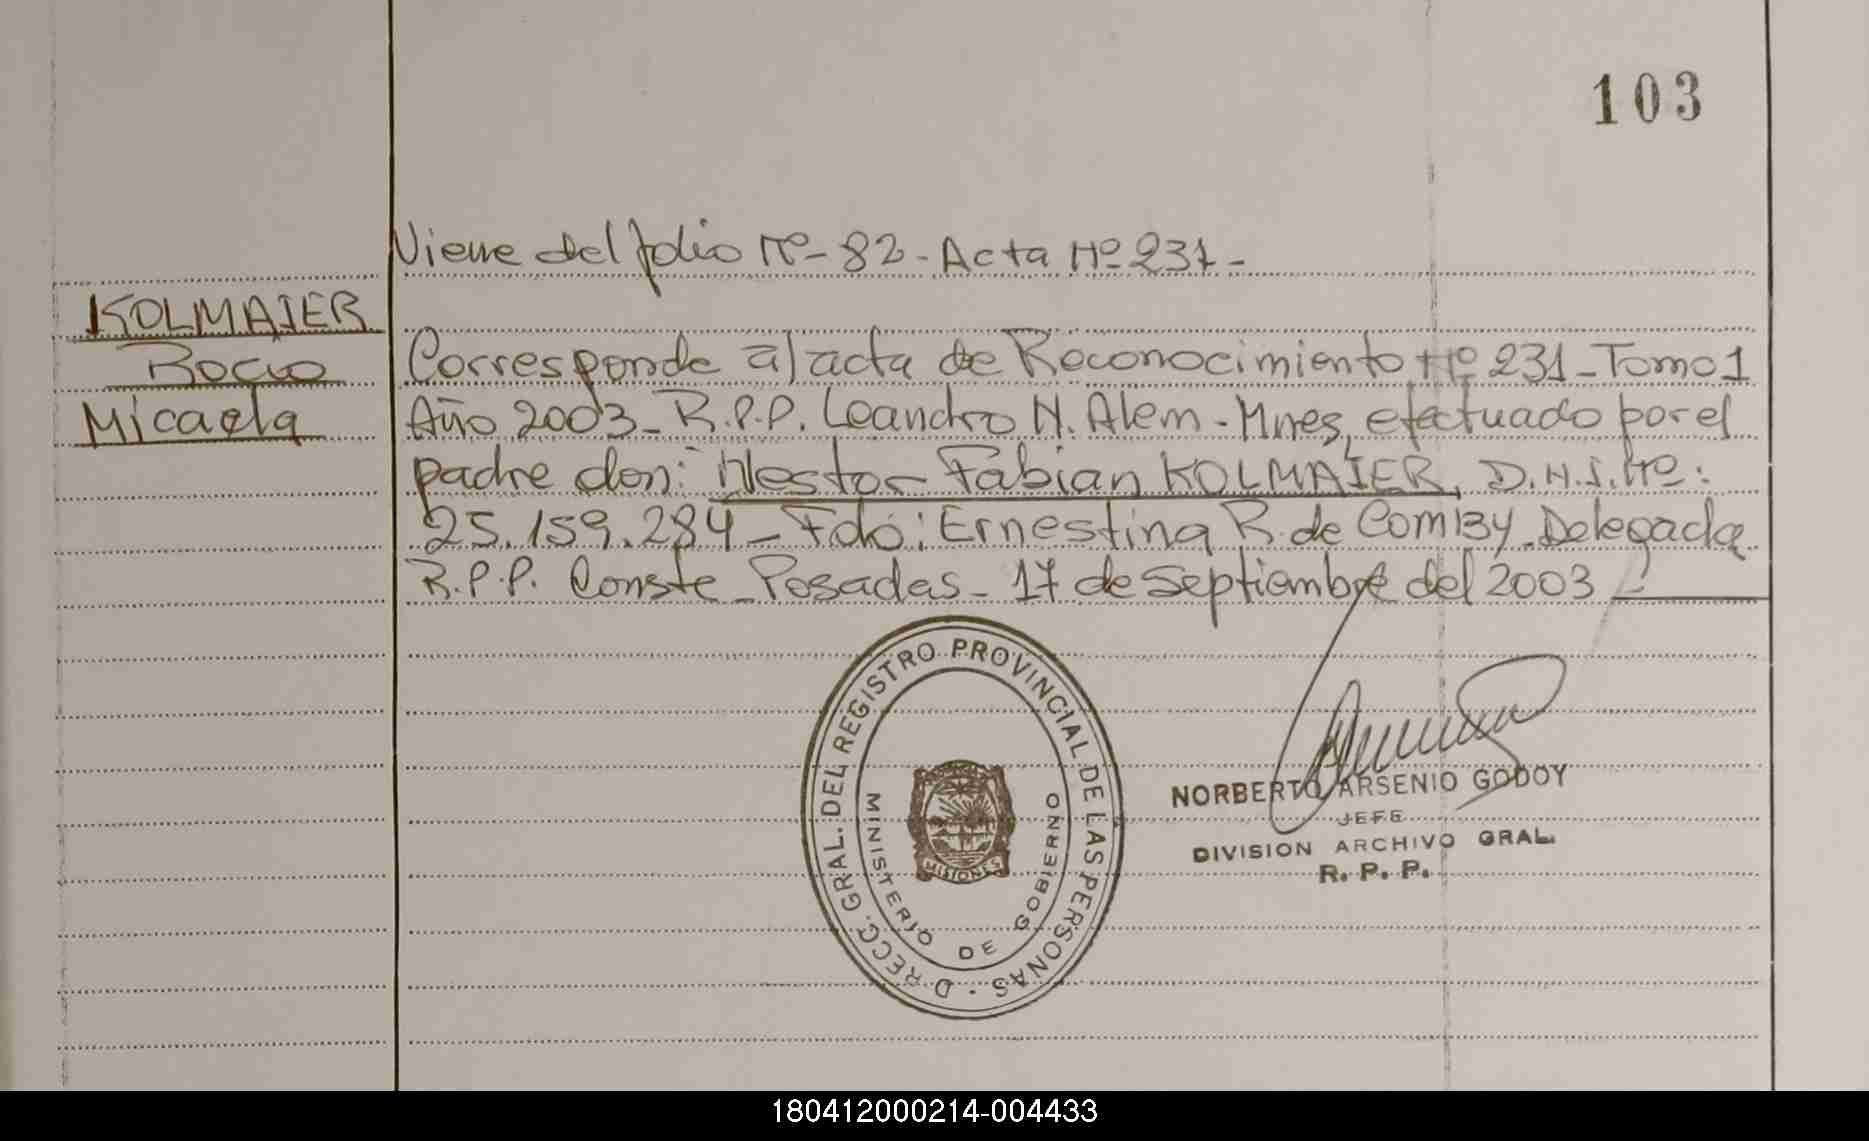 103
Viene del folio Nº- 82- Acta Nº 231-
KOLMAIER
Rocio
Micaela
Corresponde al acta de Reconocimiento Nº 231- Tomo 1
Año 2003- R.P.P. Leandro N. Alem - Mnes, efectuado por el
padre don: Nestor Fabian KOLMAIER, D.N.I. Nº:
25.159.284- Fdo: Ernestina R. de Comby- Delegada
R.P.P. Conste- Posadas- 17 de Septiembre del 2003-
D RECC. GRAL. DEL REGISTRO PROVINCIAL DE LAS PERSONAS
MINISTERIO DE GOBIERNO
MISIONES
NORBERTO ARSENIO GODOY
JEFE
DIVISION ARCHIVO GRAL.
R. P. P.
180412000214-004433